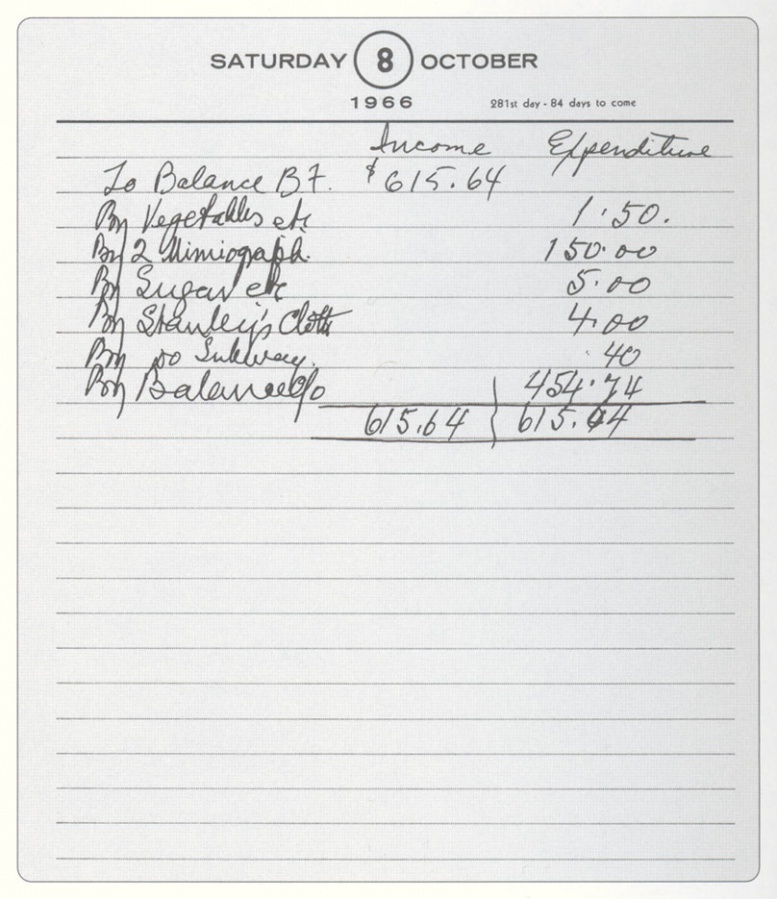 SATURDAY 8 OCTOBER
1966 281st day - 84 days to come
Income Expenditure
To Balance B F. $615.64
By Vegetables etc 1.50.
By 2 Mimiograph. 150.00
By Sugar etc 5.00
By Stanley's Cloth 4.00
By Do Subway. .40
By Balance c/o 454.74
615.64 615.64